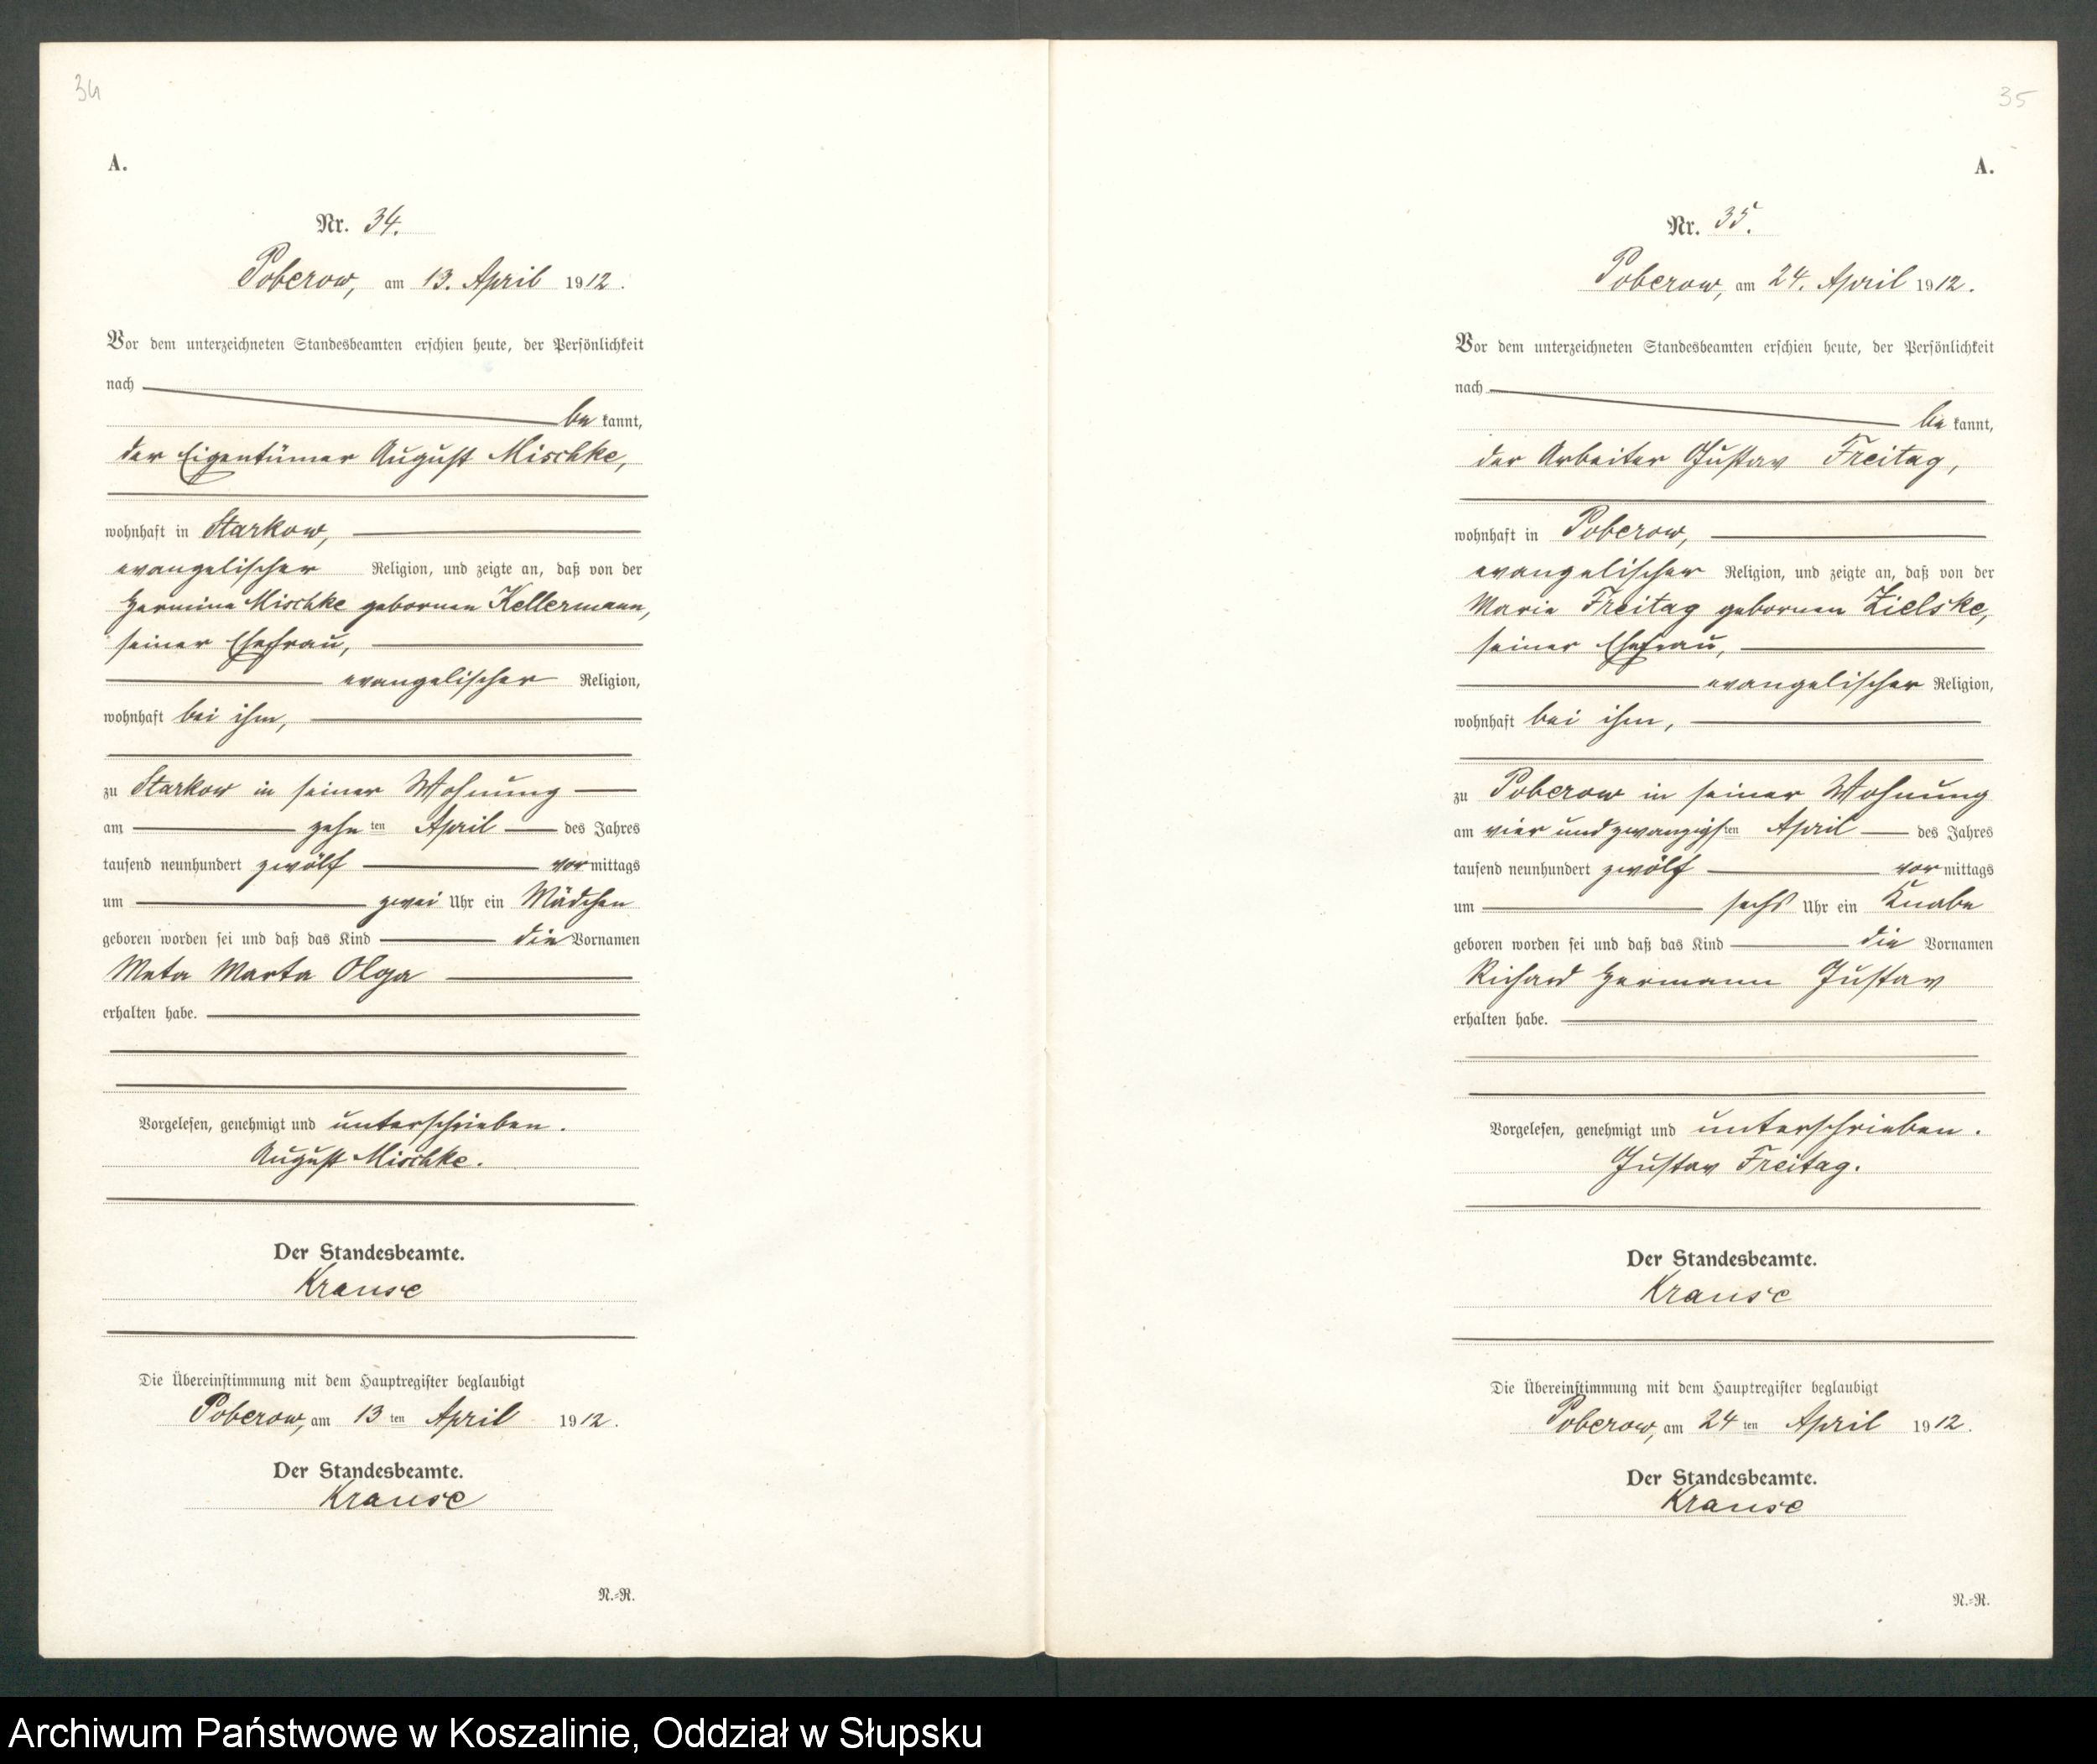 34
A.
Nr. 34.
Poberow, am 13. April 1912.
Vor dem unterzeichneten Standesbeamten erschien heute, der Persönlichkeit
nach
bekannt,
der Eigentümer August Mischke,
wohnhaft in Starkow,
evangelischer Religion, und zeigte an, daß von der
Hermine Mischke gebornen Kellermann,
seiner Ehefrau,
evangelischer Religion,
wohnhaft bei ihm,
zu Starkow in seiner Wohnung
am zehnten April des Jahres
tausend neunhundert zwölf vormittags
um zwei Uhr ein Mädchen
geboren worden sei und daß das Kind die Vornamen
Meta Marta Olga
erhalten habe.
Vorgelesen, genehmigt und unterschrieben.
August Mischke.
Der Standesbeamte.
Krause
Die Übereinstimmung mit dem Hauptregister beglaubigt
Poberow, am 13ten April 1912.
Der Standesbeamte.
Krause
N.=R.
35
A.
Nr. 35.
Poberow, am 24. April 1912.
Vor dem unterzeichneten Standesbeamten erschien heute, der Persönlichkeit
nach
bekannt,
der Arbeiter Gustav Freitag,
wohnhaft in Poberow,
evangelischer Religion, und zeigte an, daß von der
Marie Freitag gebornen Zielske,
seiner Ehefrau,
evangelischer Religion,
wohnhaft bei ihm,
zu Poberow in seiner Wohnung
am vier und zwanzigsten April des Jahres
tausend neunhundert zwölf vormittags
um sechs Uhr ein Knabe
geboren worden sei und daß das Kind die Vornamen
Richard Hermann Gustav
erhalten habe.
Vorgelesen, genehmigt und unterschrieben.
Gustav Freitag.
Der Standesbeamte.
Krause
Die Übereinstimmung mit dem Hauptregister beglaubigt
Poberow, am 24ten April 1912.
Der Standesbeamte.
Krause
N.=R.
Archiwum Państwowe w Koszalinie, Oddział w Słupsku